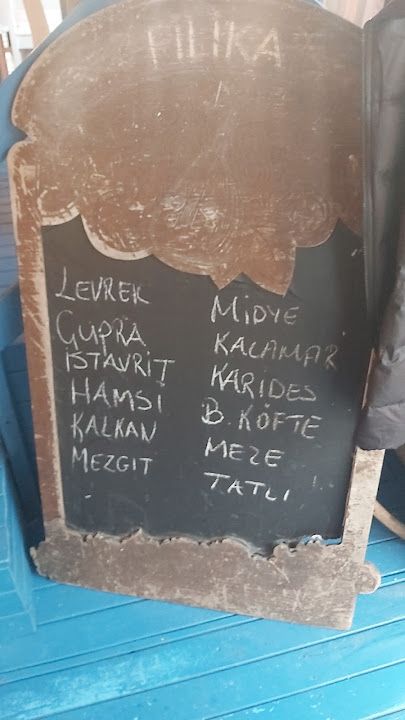 FILIKA
LEVREK
ÇUPRA
İSTAVRİT
HAMSİ
KALKAN
MEZGİT
MİDYE
KALAMAR
KARİDES
B. KÖFTE
MEZE
TATLI